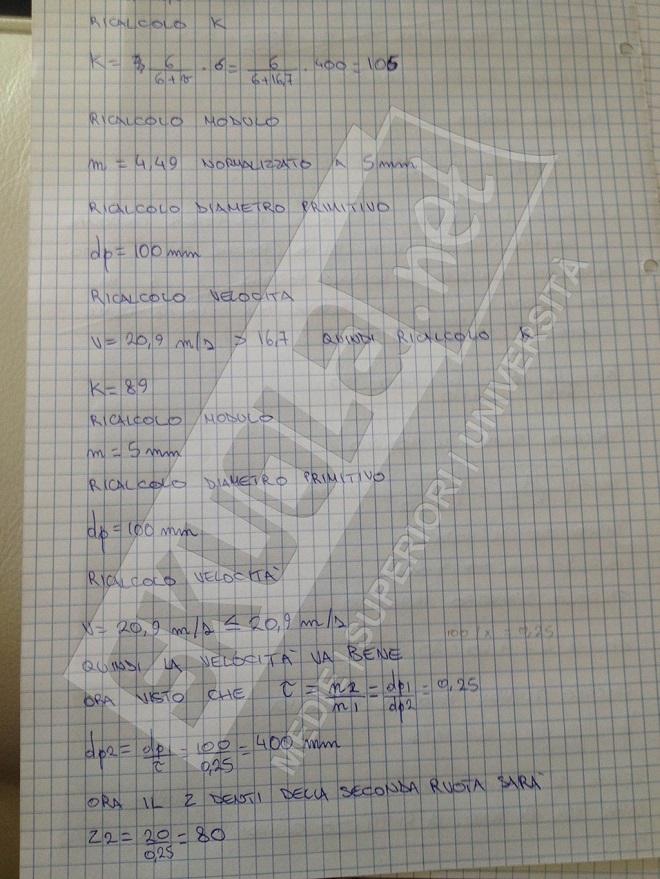 RICALCOLO K
K = 6/(6+v) · σ = 6/(6+16,7) · 400 = 106
RICALCOLO MODULO
m = 4,49 NORMALIZZATO A 5mm
RICALCOLO DIAMETRO PRIMITIVO
dp = 100 mm
RICALCOLO VELOCITA
V = 20,9 m/s > 16,7 QUINDI RICALCOLO K
K = 89
RICALCOLO MODULO
m = 5 mm
RICALCOLO DIAMETRO PRIMITIVO
dp = 100 mm
RICALCOLO VELOCITA'
V = 20,9 m/s ≤ 20,9 m/s
QUINDI LA VELOCITA' VA BENE
ORA VISTO CHE τ = n2/n1 = dp1/dp2 = 0,25
dp2 = dp1/τ = 100/0,25 = 400 mm
ORA IL Z DENTI DELLA SECONDA RUOTA SARA'
Z2 = 20/0,25 = 80
SKUOLA.net
MEDIE | SUPERIORI | UNIVERSITÀ